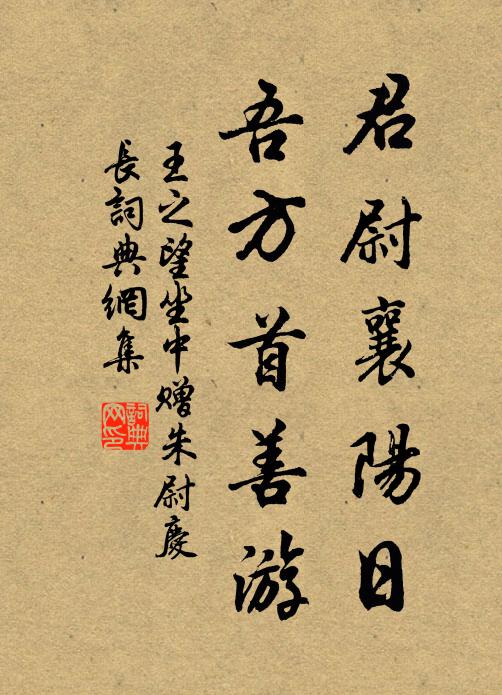 君尉襄陽日
吾方首善游
王之望坐中贈朱尉慶
長詞典網集
詞典
网印